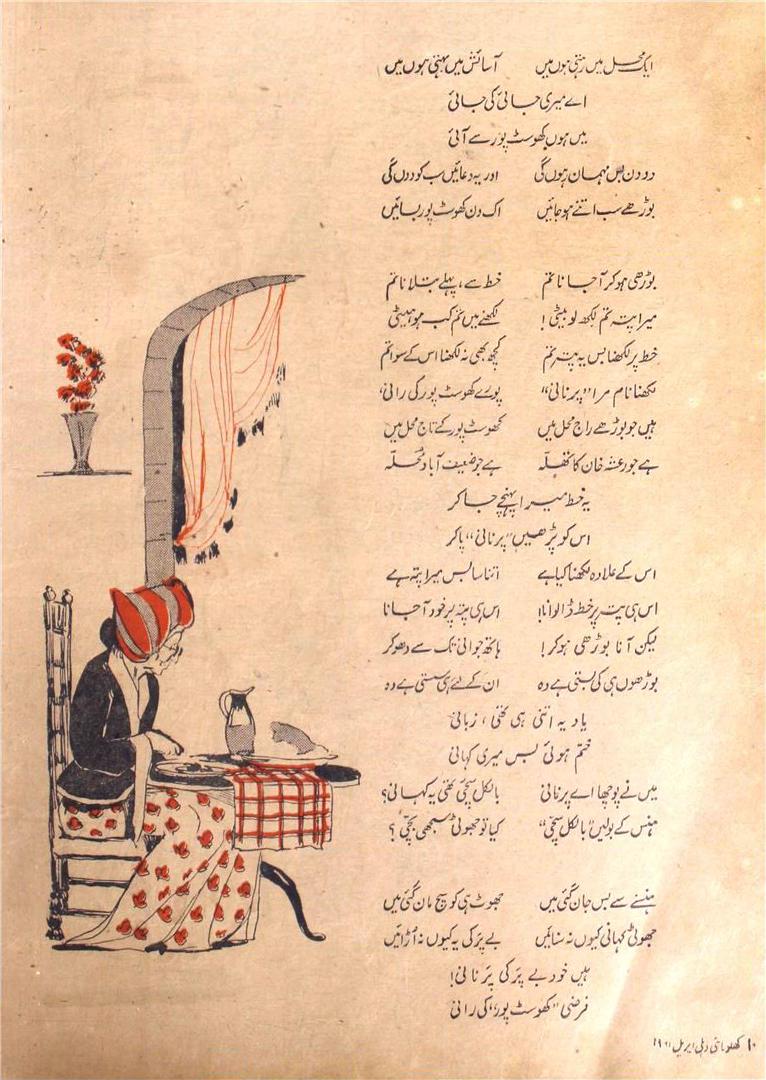 ایک محل میں رہتی ہوں میں آسائش میں بہتی ہوں میں
اے میری جائی کی جائی
میں ہوں کھوسٹ پور سے آئی
دو دن بس مہمان ہوں گی اور یہ دعائیں سب کو دوں گی
بوڑھے سب اتنے ہو جائیں اک دن کھوسٹ پور بسائیں
بوڑھی ہو کر آ جانا تم خط سے، پہلے بتلانا تم
میرا پتہ تم لکھ لو بیٹی! لکھنے میں تم کب ہو ہیٹی
خط پر لکھنا بس یہ پتہ تم کچھ بھی نہ لکھنا اس کے سوا تم
لکھنا نام مرا "پرنانی" پورے کھوسٹ پور کی رانی
ہیں جو بوڑھے راج محل میں کھوسٹ پور کے تاج محل میں
ہے جو رعشہ خان کا ہے جو ضعیف آباد محلہ
یہ خط میرا پہنچے جا کر
اس کو پڑھیں "پرنانی" پا کر
اس کے علاوہ لکھنا کیا ہے اتنا سا بس میرا پتہ ہے
اس ہی پتہ پر خط ڈالوانا! اس ہی پتہ پر خود آ جانا
لیکن آنا بوڑھی ہو کر! ہاتھ جوانی تک سے دھو کر
بوڑھوں ہی کی بستی ہے وہ ان کے لئے ہی سستی ہے وہ
یاد یہ اتنی ہی تھی، زبانی
ختم ہوئی بس میری کہانی
میں نے پوچھا اے پرنانی بالکل سچی تھی یہ کہانی؟
ہنس کے بولیں "بالکل سچی" کیا تو جھوٹی سمجھی بچی؟
ہنسنے سے بس جان گئی میں جھوٹ ہی کو سچ مان گئی میں
جھوٹی کہانی کیوں نہ سنائیں بے پر کی یہ کیوں نہ اڑائیں
ہیں خود بے پر کی پرنانی!
فرضی "کھوسٹ پور" کی رانی
۱۰ کھلونا نئی دہلی اپریل